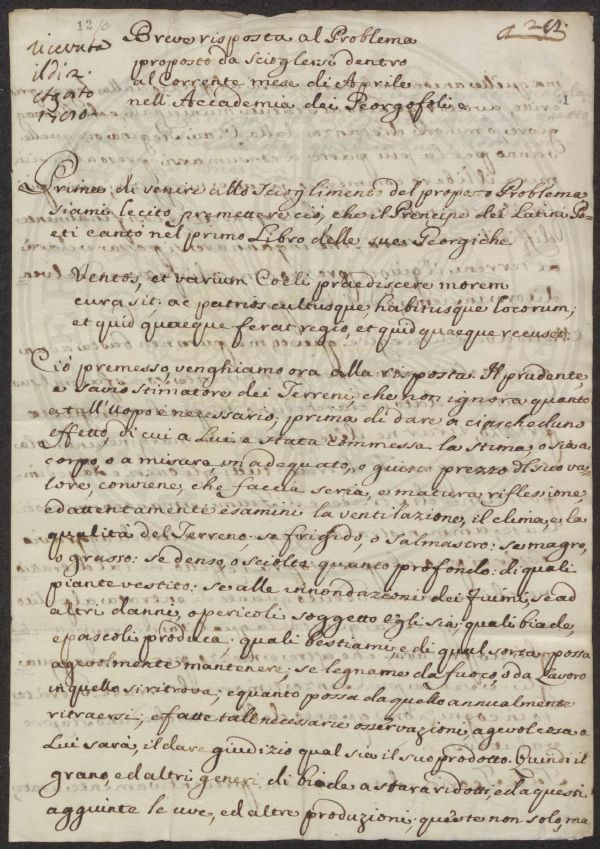 12/3
202.
ricevuta
il di 2.
Agosto
1770
1
Breve risposta al Problema
proposto da scioglersi dentro
al corrente mese di Aprile
nell'Accademia dei Georgofoli e
Prima di venire allo scioglimento del proposto Problema
siami lecito premettere ciò, che il Prencipe dei Latini Po-
eti cantò nel primo Libro delle sue Georgiche
Ventos, et varium Coeli praediscere morem
cura sit: ac patrios cultusque habitusque locorum;
et quid quaeque ferat regio, et quid quaeque recuset.
Ciò premesso, venghiamo ora alla risposta. Il prudente,
e savio stimatore dei Terreni, che non ignora quanto
a tall'Uopo è necessario, prima di dare a ciascheduno
effetto, di cui a Lui è stata commessa la stima, o sia a
corpo, o a misura, un adequato, o giusto prezzo di suo va-
lore, conviene, che faccia seria, e matura riflessione,
ed attentamente esamini la ventilazione, il clima, e la
qualità del Terreno, se frigido, o salmastro: se magro,
o grasso: se denso, o sciolto: quanto profondo: di quali
piante vestito: se alle innondazioni dei fiumi, se ad
altri danni, o pericoli soggetto egli sia; quali biade,
e pascoli produca; quali bestiami, e di qual sorta possa
agevolmente mantenere; se legname da fuoco, o da Lavoro
in quello si ritrova; e quanto possa da quello annualmente
ritraersi; e fatte tali necessarie osservazioni, agevol cosa a
Lui sarà, il dare giudizio qual sia il suo prodotto. Quindi il
grano, ed altri generi di biade a ridotti, ed a questi
aggiunte le uve, ed altre produzioni: queste non solo, ma